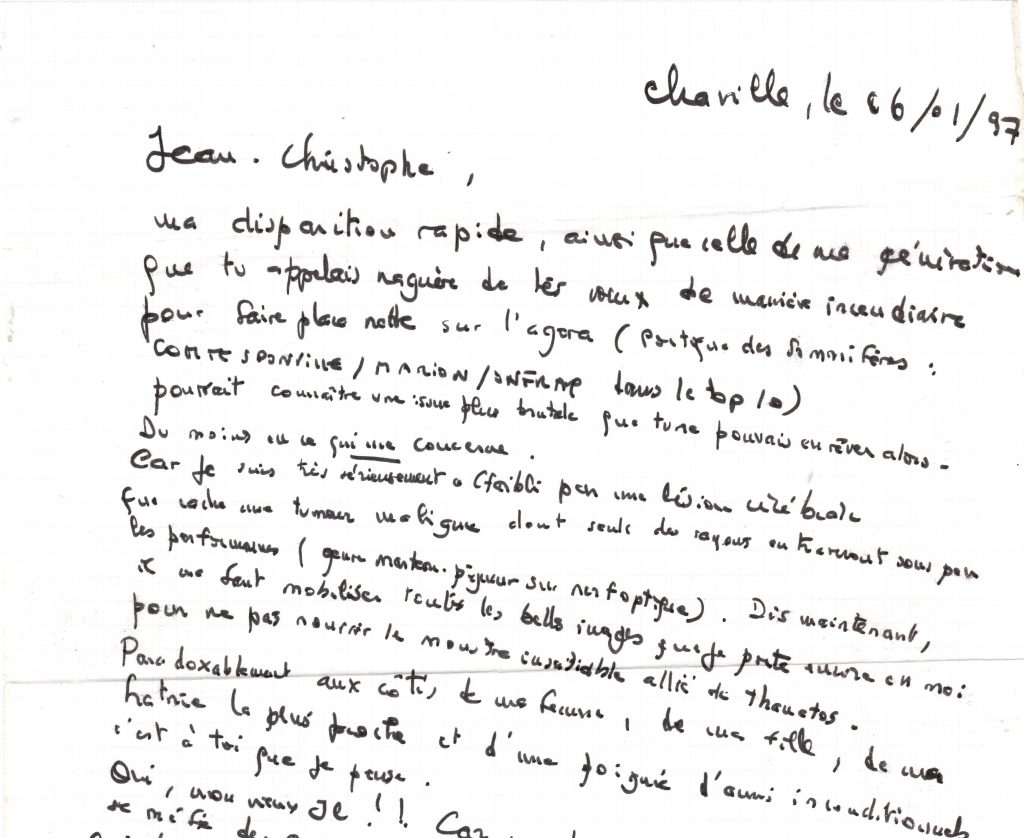 Chaville, le 26/01/97
Jean-Christophe,
ma disparition rapide, ainsi que celle de ma génération
que tu appelais naguère de tes vœux de manière incendiaire
pour faire place nette sur l'agora (portique des somnifères :
COMTE SPONVILLE / MARION / ONFRAY dans le top 10)
pourrait connaître une issue plus brutale que tu ne pouvais en rêver alors.
Du moins en ce qui me concerne.
Car je suis très sérieusement affaibli par une lésion cérébrale
que cache une tumeur maligne dont seuls des rayons entraveront sous peu
les performances (genre marteau-piqueur sur nerf optique). Dès maintenant,
il me faut mobiliser toutes les belles images que je porte encore en moi
pour ne pas nourrir le monstre insatiable allié de Thanatos.
Paradoxablement aux côtés de ma femme, de ma fille, de ma
fratrie la plus proche et d'une poignée d'amis inconditionnels
c'est à toi que je pense.
Oui, mon vieux Je !! Car
se méfie des